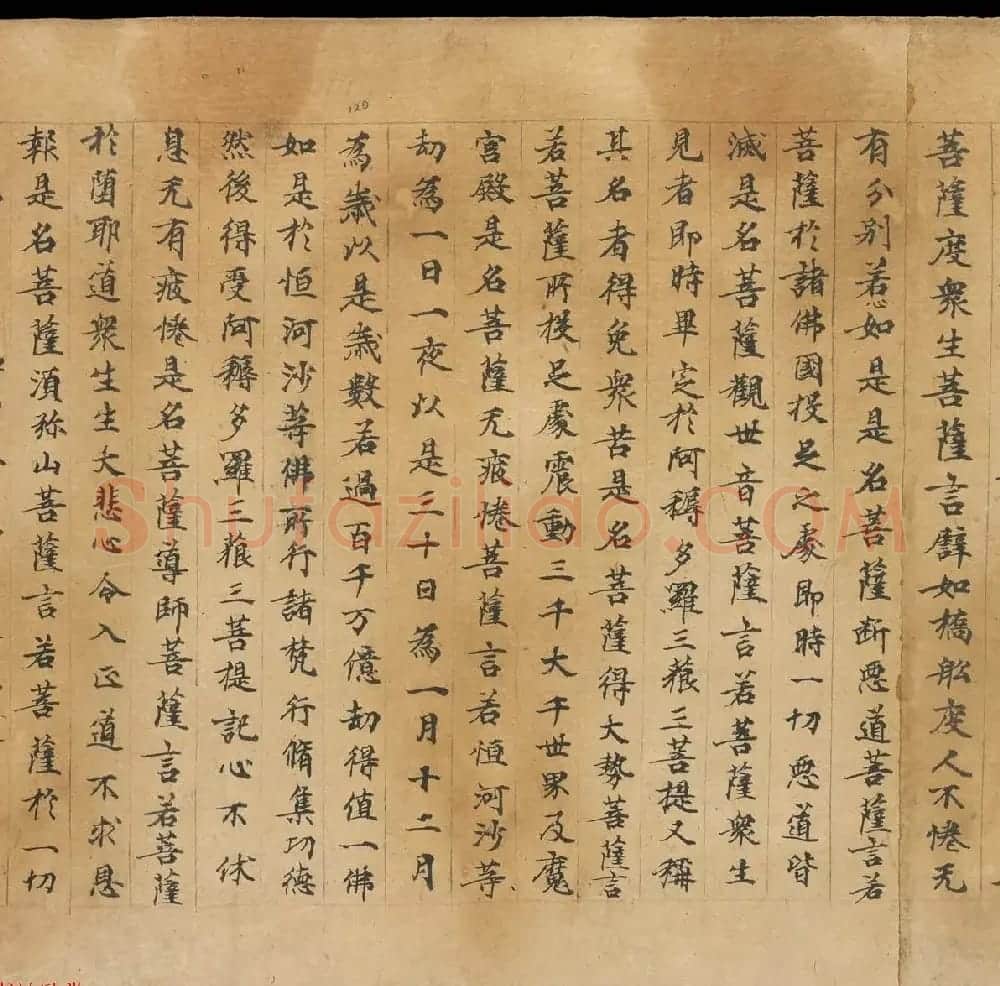 菩薩度衆生菩薩言譬如橋舩度人不惓无
有分別若心如是是名菩薩断惡道菩薩言若
菩薩於諸佛國投足之處即時一切惡道皆
滅是名菩薩觀世音菩薩言若菩薩衆生
見者即時畢定於阿耨多羅三藐三菩提又稱
其名者得免衆苦是名菩薩得大勢菩薩言
若菩薩所投足處震動三千大千世界及魔
宮殿是名菩薩无疲惓菩薩言若恒河沙等
劫為一日一夜以是三十日為一月十二月
為歲以是歲數若過百千万億劫得值一佛
如是於恒河沙等佛所行諸梵行脩集功德
然後得受阿耨多羅三藐三菩提記心不休
息无有疲惓是名菩薩導師菩薩言若菩薩
於墮耶道衆生生大悲心令入正道不求恩
報是名菩薩須弥山菩薩言若菩薩於一切
120
Shufaziliao.COM